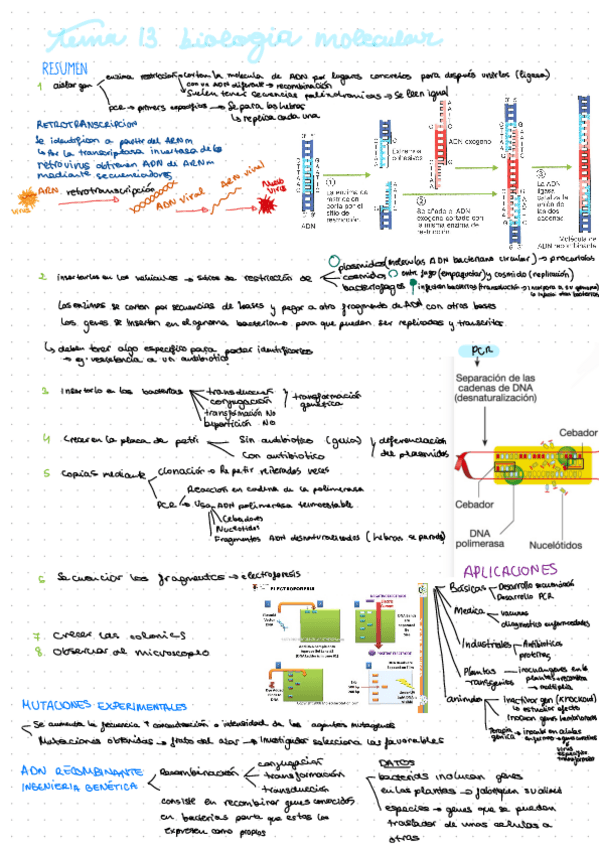 Tema 13 biología molecular
RESUMEN
1 aislar gen
enzima restricción cortan la molecula de ADN por lugares concretos para después unirlos (ligasa)
con un ADN diferente → recombinación
suelen tener secuencias palindromicas → se leen igual
pcr → primers especificos → Se para las hebras
↳ replica cada una
RETROTRANSCRIPCION
Se identifican a partir del ARNm
↳ Por la transcriptasa inversa de los
retrovirus obtienen ADN de ARNm
mediante secuenciadores
virus
ARN
retrotranscripción
ADN viral
ARN viral
Nuevo
virus
ADN
①
La enzima de
restricción
corta por el
sitio de
restricción.
Extremos
cohesivos
②
Se añade a ADN
exógeno cortado con
la misma enzima de
restricción.
ADN exógeno
③
La ADN
ligasa
cataliza la
unión de
las dos
cadenas
Molécula de
ADN recombinante
2 insertarlo en los vehículos → sitios de restricción de
plasmidos (moleculas ADN bacteriano circular) → procariotas
cosmidos entre fago (empaquetar) y cosmido (replicación)
bacteriofagos infectan bacterias (transducción → incorpora a su genoma)
las enzimas se cortan por secuencias de bases y pegar a otro fragmento de ADN con otras bases
los genes se insertan en el genoma bacteriano para que puedan ser replicados y transcritos
↳ deben tener algo especifico para poder identificarlos
→ eg. resistencia a un antibiotico
3 Insertarlo en las bacterias
transducción
conjugación
transformación No
bipartición No
transformación
genética
4 Crecer en la placa de petri
Sin antibiotico (guia)
Con antibiotico
diferenciación
de plasmidos
5 copias mediante
clonación → Repetir reiteradas veces
PCR →
Reaccion en cadena de la polimerasa
Usa ADN polimerasa termoestable
Cebadores
Nucleotidos
Fragmentos ADN desnaturalizados (hebras separadas)
PCR
Separación de las
cadenas de DNA
(desnaturalización)
Cebador
Cebador
DNA
polimerasa
Nucelótidos
6 Secuenciar los fragmentos → electroforesis
7. Crecer las colonias
8. Observar al microscopio
ELECTROFORESIS
APLICACIONES
Básicas
Desarrollo secuenciación
Desarrollo PCR
Medica
vacunas
diagnostico enfermedades
Industriales
Antibióticos
proteínas
Plantas
transgenicas
animales
inactivar gen (knockout)
↳ estudiar efecto
Terapia
génica
MUTACIONES EXPERIMENTALES
Se aumenta la frecuencia + concentración o intensidad de los agentes mutagenos
Mutaciones obtenidas → fruto del azar → Investigador selecciona las favorables
ADN RECOMBINANTE
INGENIERIA GENÉTICA
Recombinación
conjugación
transformación
transducción
consiste en recombinar genes conocidos
en bacterias para que estas los
expresen como propios
DATOS
bacterias inoculan genes
en las plantas →
especies → genes que se puedan
trasladar de unas celulas a
otras